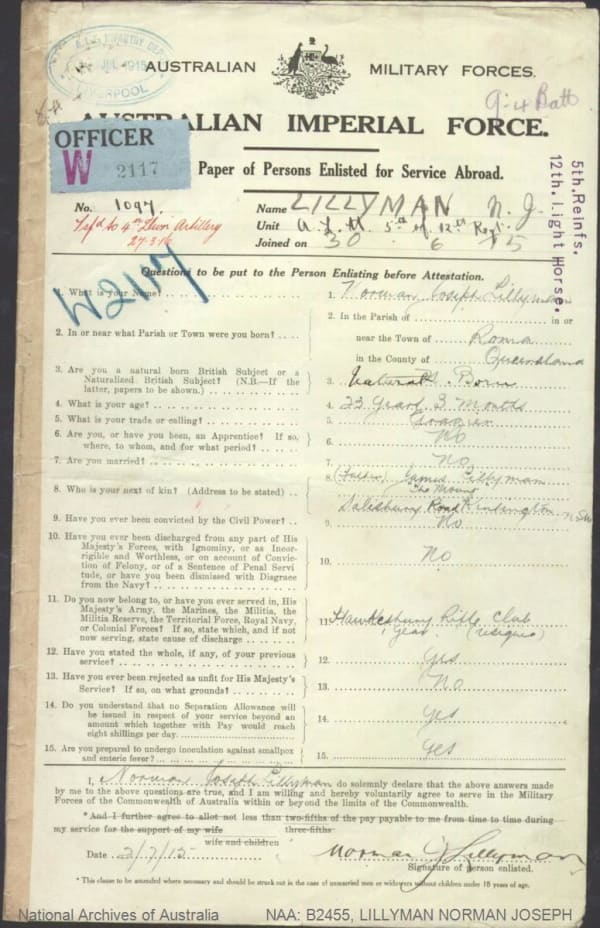 A.I.F. INFANTRY DEP
JUL 1915
LIVERPOOL
AUSTRALIAN MILITARY FORCES.
AUSTRALIAN IMPERIAL FORCE.
OFFICER
W 2117
Paper of Persons Enlisted for Service Abroad.
5th. Reinfs.
12th. Light Horse.
No. 1097
Name LILLYMAN N. J.
Unit A.L.H. 5th of 12th Regt.
Joined on 30 6 15
27-3-16
W2117
Questions to be put to the Person Enlisting before Attestation.
1. What is your Name? 1. Norman Joseph Lillyman
2. In or near what Parish or Town were you born? 2. In the Parish of in or
near the Town of Roma
in the County of Queensland
3. Are you a natural born British Subject or a
Naturalized British Subject? (N.B.—If the
latter, papers to be shown.) 3. Natural Born
4. What is your age? 4. 23 Years 3 Months
5. What is your trade or calling? 5. Grazier
6. Are you, or have you been, an Apprentice? If so,
where, to whom, and for what period? 6. No
7. Are you married? 7. No
8. Who is your next of kin? (Address to be stated) 8. (Father) James Lillyman
Salisbury Road Kensington NSW
9. Have you ever been convicted by the Civil Power? 9. No
10. Have you ever been discharged from any part of His
Majesty's Forces, with Ignominy, or as Incor-
rigible and Worthless, or on account of Convic-
tion of Felony, or of a Sentence of Penal Servi
tude, or have you been dismissed with Disgrace
from the Navy? 10. No
11. Do you now belong to, or have you ever served in, His
Majesty's Army, the Marines, the Militia, the
Militia Reserve, the Territorial Force, Royal Navy,
or Colonial Forces? If so, state which, and if not
now serving, state cause of discharge 11. Hawkesbury Rifle Club
1 year (resigned)
12. Have you stated the whole, if any, of your previous
service? 12. Yes
13. Have you ever been rejected as unfit for His Majesty's
Service? If so, on what grounds? 13. No
14. Do you understand that no Separation Allowance will
be issued in respect of your service beyond an
amount which together with Pay would reach
eight shillings per day. 14. Yes
15. Are you prepared to undergo inoculation against smallpox
and enteric fever? 15. Yes
I, Norman Joseph Lillyman do solemnly declare that the above answers made
by me to the above questions are true, and I am willing and hereby voluntarily agree to serve in the Military
Forces of the Commonwealth of Australia within or beyond the limits of the Commonwealth.
*And I further agree to allot not less than two-fifths of the pay payable to me from time to time during
my service for the support of my wife three-fifths
wife and children
Date 2/7/15 Norman J Lillyman
Signature of person enlisted.
*This clause to be amended where necessary and should be struck out in the case of unmarried men or widowers without children under 18 years of age.
National Archives of Australia NAA: B2455, LILLYMAN NORMAN JOSEPH